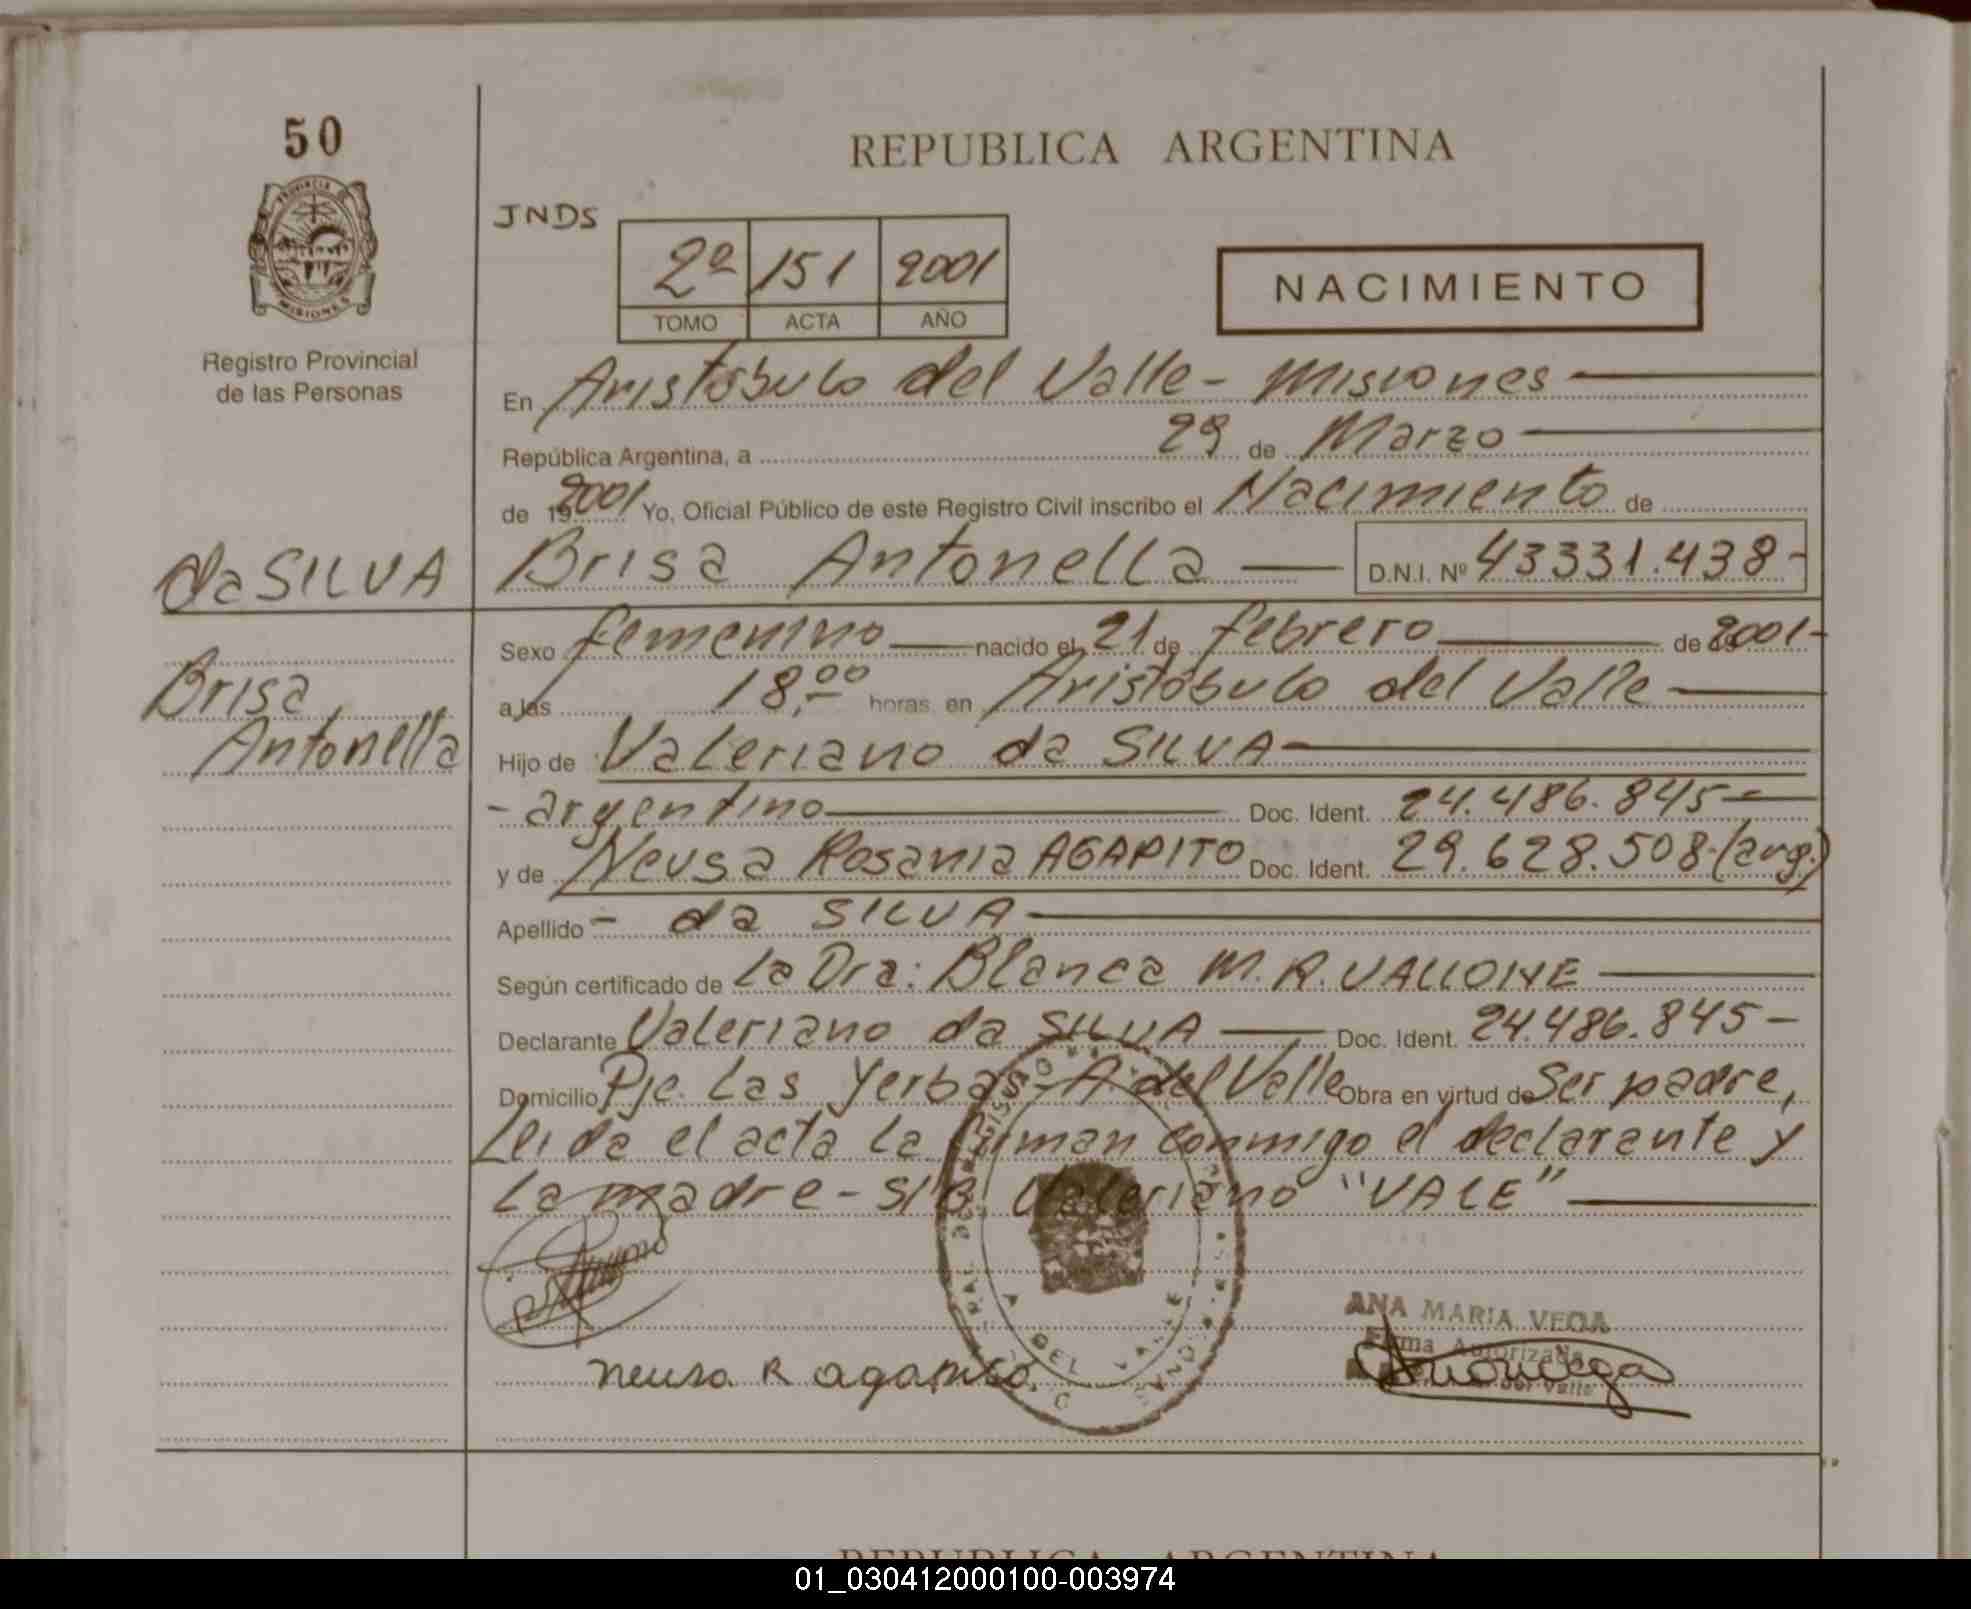 50
REPUBLICA ARGENTINA
JNDS
2º 151 2001
TOMO ACTA AÑO
NACIMIENTO
Registro Provincial
de las Personas
En Aristóbulo del Valle - Misiones
República Argentina, a 29 de Marzo
de 19 2001 Yo, Oficial Público de este Registro Civil inscribo el Nacimiento de
da SILVA
Brisa Antonella D.N.I. Nº 43331.438-
Sexo femenino nacido el 21 de febrero de 2001-
Brisa
Antonella
a las 18,00 horas en Aristóbulo del Valle
Hijo de Valeriano da SILVA
- argentino Doc. Ident. 24.486.845-
y de Neusa Rosania AGAPITO Doc. Ident. 29.628.508-(arg.)
Apellido - da SILVA
Según certificado de La Dra: Blanca M. R. VALLONE
Declarante Valeriano da SILVA Doc. Ident. 24.486.845-
Domicilio Pje. Las Yerbas - A del Valle Obra en virtud de Ser padre,
Leida el acta la firman conmigo el declarante y
la madre - S/B: Valeriano "VALE"
A DEL VALLE
ANA MARIA VEGA
Firma Autorizada
del Valle
neusa R agapito
REPUBLICA ARGENTINA
01_030412000100-003974